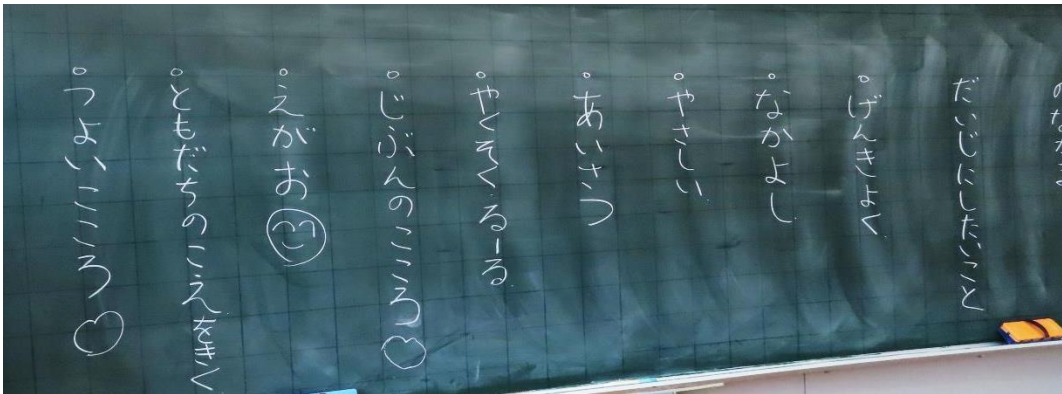 だいじにしたいこと
・げんきよく
・なかよし
・やさしい
・あいさつ
・やくそく るーる
・じぶんのこころ♡
・えがお
・ともだちのこえをきく
・つよいこころ♡